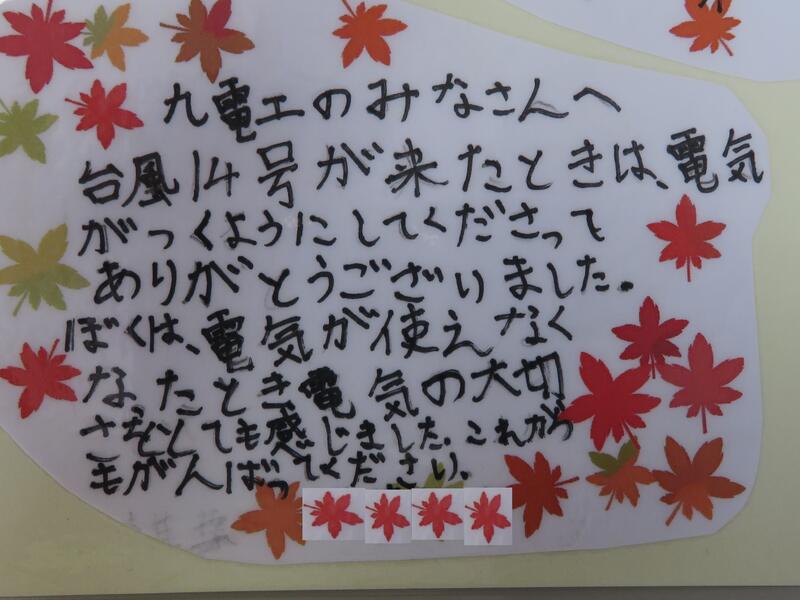 九電工のみなさんへ
台風14号が来たときは、電気
がつくようにしてくださって
ありがとうございました。
ぼくは、電気が使えなく
なったとき電気の大切
さをとても感じました。これから
もがんばってください。